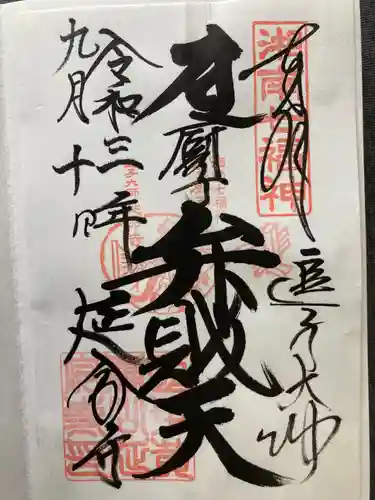 奉拝
湘南七福神
逗子大師
厄除
弁財天
令和三年
九月十日
延命寺